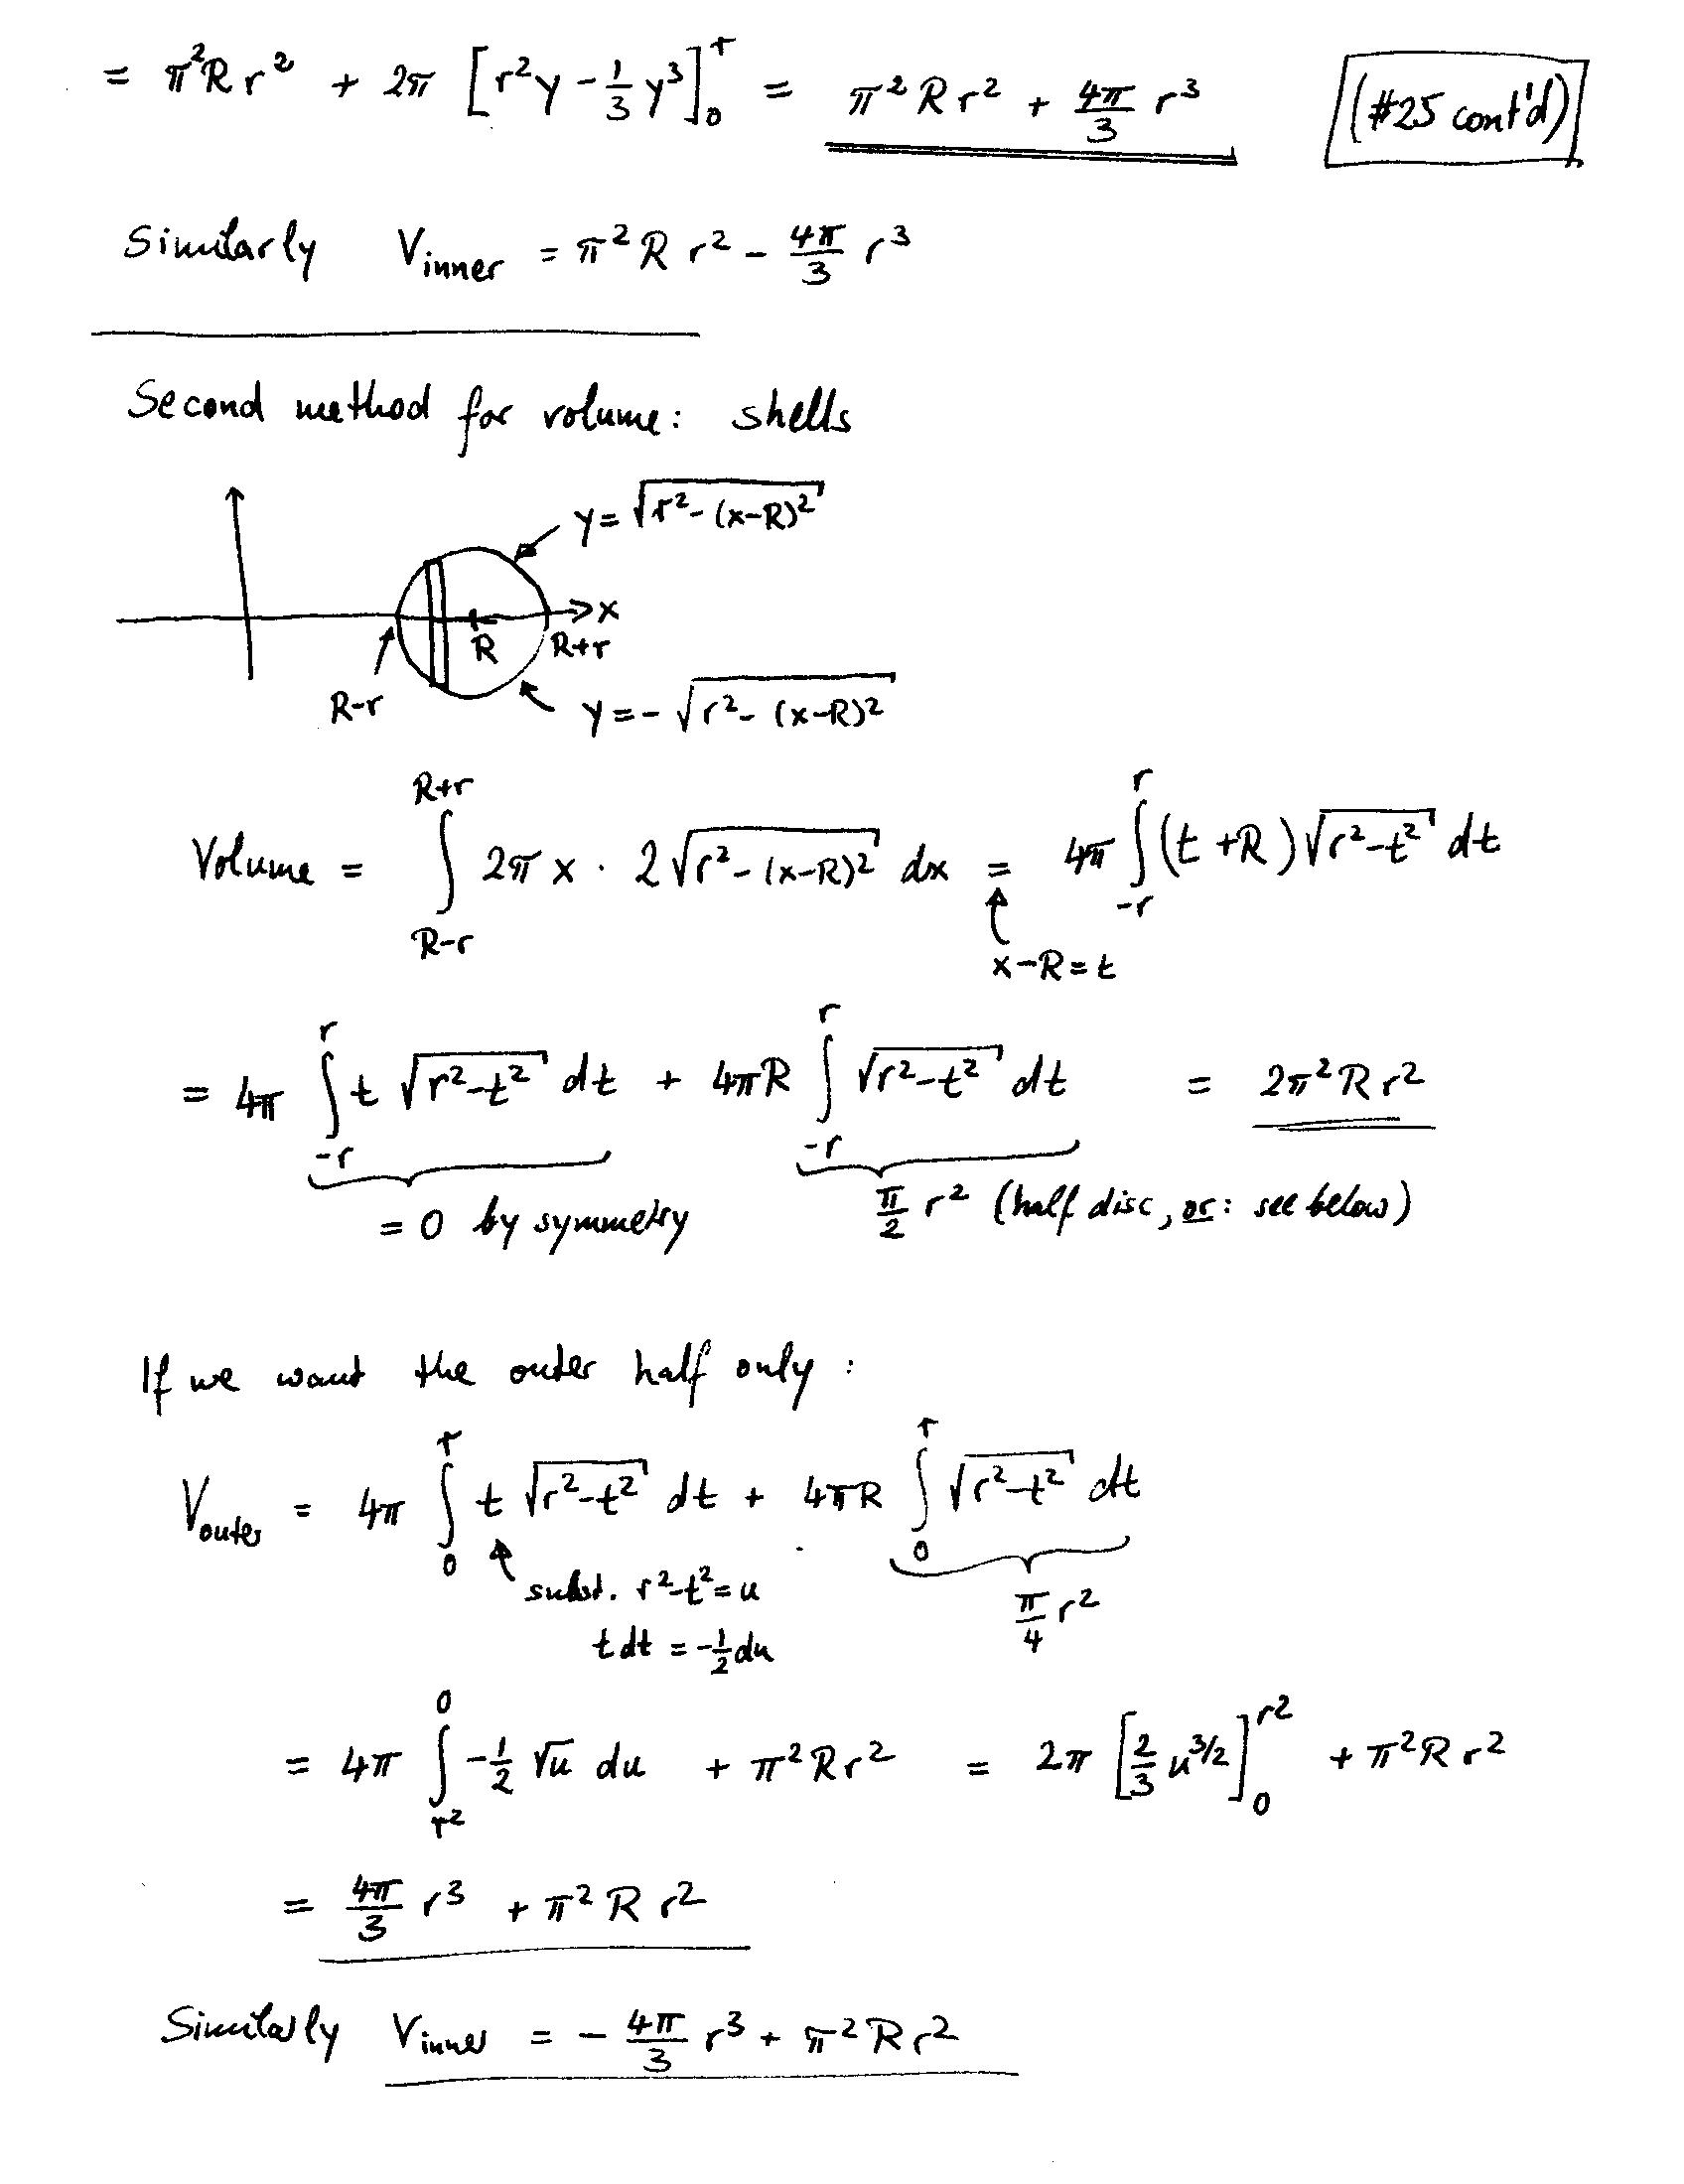 = π²Rr² + 2π [r²y - 1/3 y³]₀ʳ = π²Rr² + 4π/3 r³ (#25 cont'd)
Similarly V_inner = π²Rr² - 4π/3 r³
Second method for volume: shells
y = √(r² - (x-R)²)
x
R R+r
R-r
y = -√(r² - (x-R)²)
Volume = ∫_{R-r}^{R+r} 2πx · 2√(r² - (x-R)²) dx = 4π ∫_{-r}^{r} (t+R)√(r²-t²) dt
x-R=t
= 4π ∫_{-r}^{r} t √(r²-t²) dt + 4πR ∫_{-r}^{r} √(r²-t²) dt = 2π²Rr²
= 0 by symmetry π/2 r² (half disc, or: see below)
If we want the outer half only:
V_outer = 4π ∫₀ʳ t √(r²-t²) dt + 4πR ∫₀ʳ √(r²-t²) dt
subst. r²-t²=u π/4 r²
t dt = -1/2 du
= 4π ∫_{r²}^{0} -1/2 √u du + π²Rr² = 2π [2/3 u^{3/2}]_0^{r²} + π²Rr²
= 4π/3 r³ + π²Rr²
Similarly V_inner = - 4π/3 r³ + π²Rr²